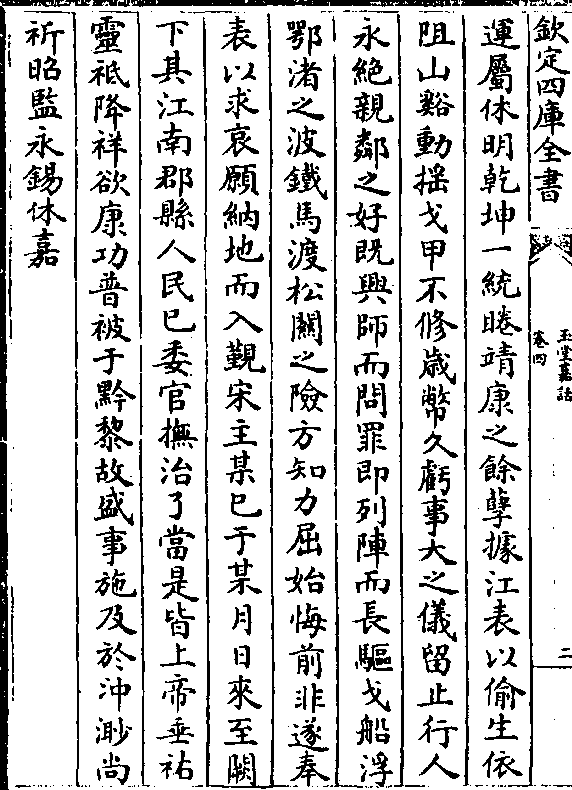 欽定四庫全書
玉堂嘉話
卷四
二
運屬休明乾坤一統睠靖康之餘孽據江表以偷生依
阻山谿動揺戈甲不修歳幣久虧事大之儀留止行人
永絶親鄰之好既興師而問罪即列陣而長驅戈船浮
鄂渚之波鐵馬渡松關之險方知力屈始悔前非遂奉
表以求哀願納地而入覲宋主某已于某月日來至闕
下其江南郡縣人民已委官撫治了當是皆上帝垂祐
靈祇降祥欲康功普被于黔黎故盛事施及於沖渺尚
祈昭監永錫休嘉